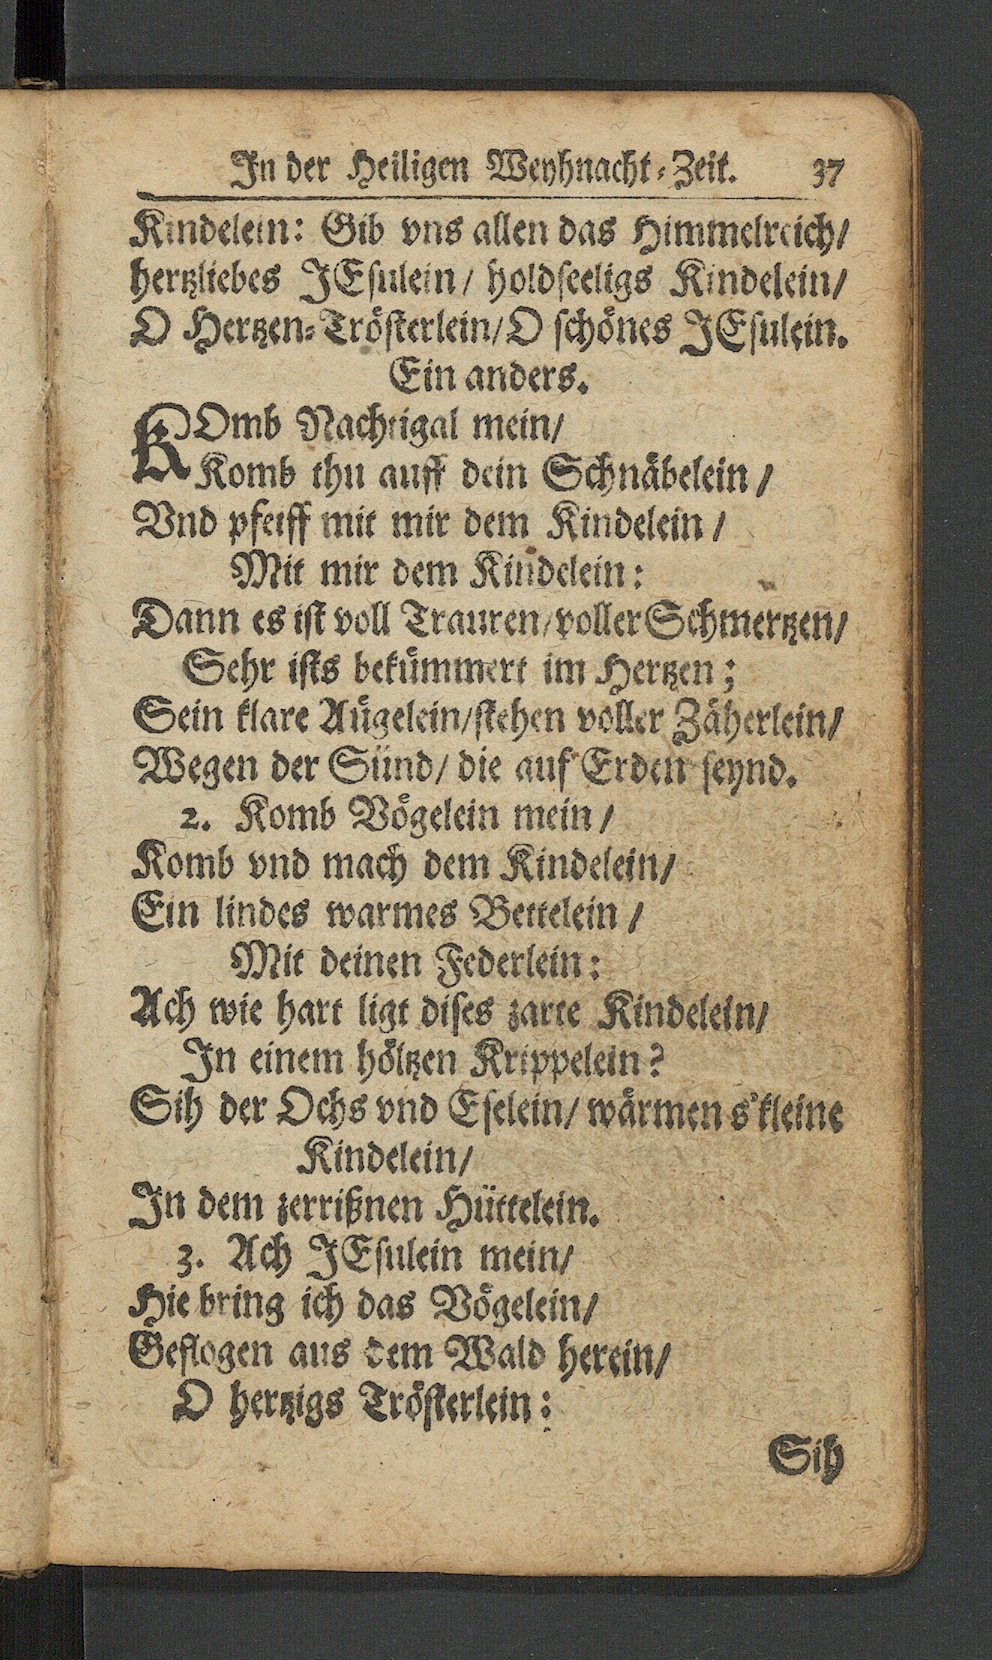 In der Heiligen Weyhnacht-Zeit. 37
Kindelein: Gib vns allen das Himmelreich/
hertzliebes JEsulein/ holdseeligs Kindelein/
O Hertzen-Trösterlein/ O schönes JEsulein.
Ein anders.
KOmb Nachtigal mein/
Komb thu auff dein Schnäbelein/
Vnd pfeiff mit mir dem Kindelein/
Mit mir dem Kindelein:
Dann es ist voll Trauren/ voller Schmertzen/
Sehr ists bekümmert im Hertzen;
Sein klare Aügelein/ stehen voller Zäherlein/
Wegen der Sünd/ die auf Erden seynd.
2. Komb Vögelein mein/
Komb vnd mach dem Kindelein/
Ein lindes warmes Bettelein/
Mit deinen Federlein:
Ach wie hart ligt dises zarte Kindelein/
In einem höltzen Krippelein?
Sih der Ochs vnd Eselein/ wärmen s'kleine
Kindelein/
In dem zerrißnen Hüttelein.
3. Ach JEsulein mein/
Hie bring ich das Vögelein/
Geflogen aus dem Wald herein/
O hertzigs Trösterlein:
Sih